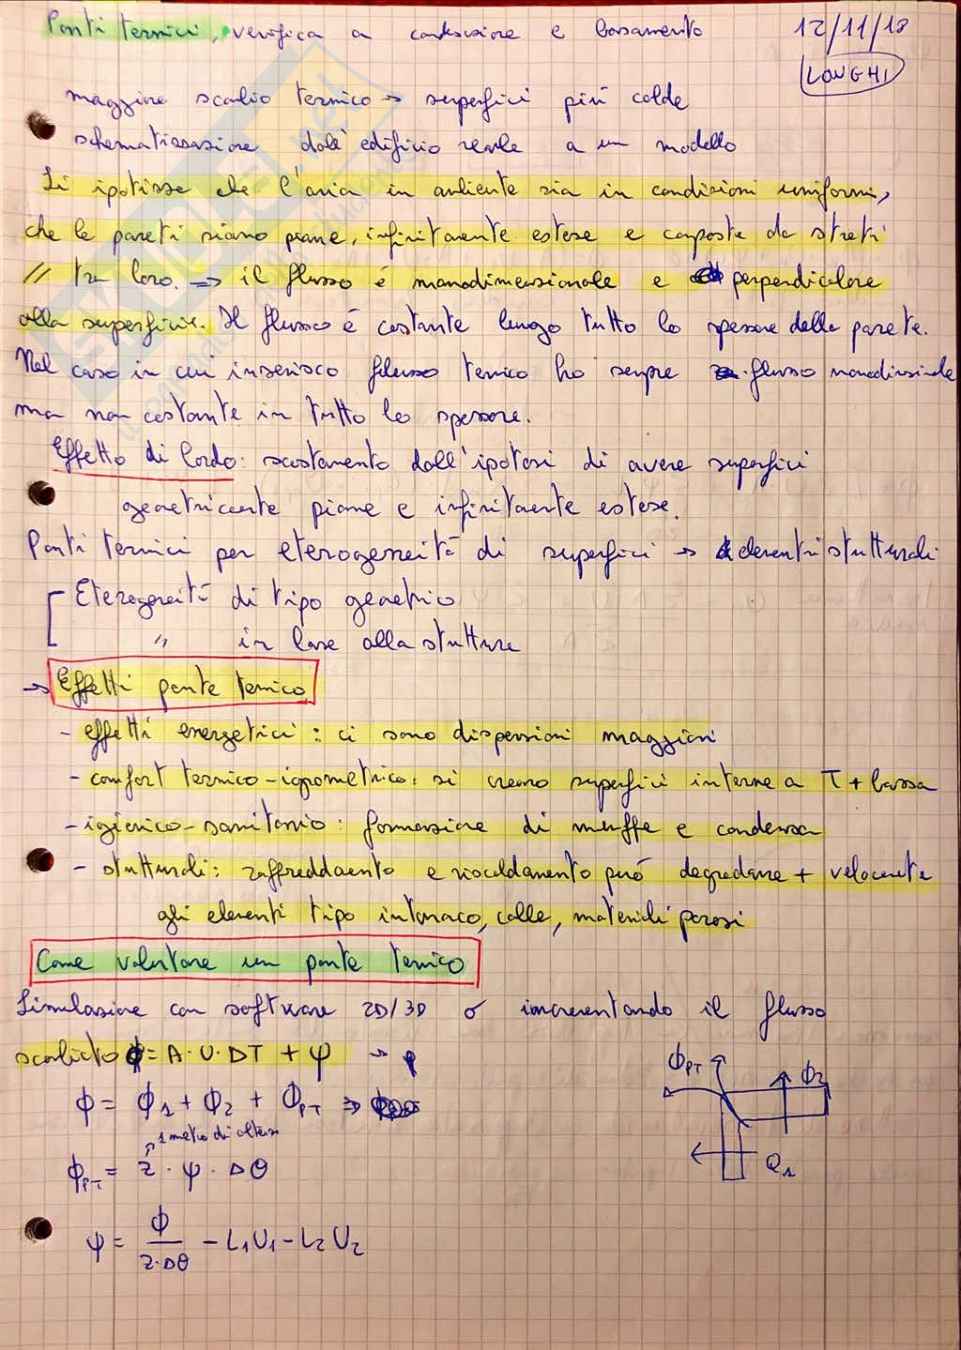 Ponti termici, verifica a condensazione e basamento 12/11/18
LONGHI
maggiore scambio termico → superfici più calde
schematizzazione dall'edificio reale a un modello
Si ipotizza che l'aria in ambiente sia in condizioni uniformi,
che le pareti siano piane, infinitamente estese e composte da strati
// tra loro. → il flusso é monodimensionale e perpendicolare
alla superficie. Il flusso é costante lungo tutto lo spessore della parete.
Nel caso in cui inserisco flusso termico ho sempre flusso monodimensionale
ma non costante in tutto lo spessore.
Effetto di bordo: scostamento dall'ipotesi di avere superfici
geometricamente piane e infinitamente estese.
Ponti termici per eterogeneità di superfici → elementi strutturali
Eterogeneità di tipo geometrico
" in base alla strutture
→ Effetti ponte termico
- effetti energetici: ci sono dispersioni maggiori
- comfort termico-igrometrico: si creano superfici interne a T + bassa
- igienico-sanitario: formazione di muffe e condensa
- strutturali: raffreddamento e riscaldamento può degradare + velocemente
gli elementi tipo intonaco, colle, materiali porosi
Come valutare un ponte termico
Simulazione con software 2D/3D o incrementando il flusso
scambiato ϕ = A·U·ΔT + ψ →
ϕ = ϕ1 + ϕ2 + ϕPT ⇒
1 metro di altezza
ϕPT = Z · ψ · Δθ
ψ = ϕ / Z·Δθ - L1U1 - L2U2
ϕPT ϕ2
Q1